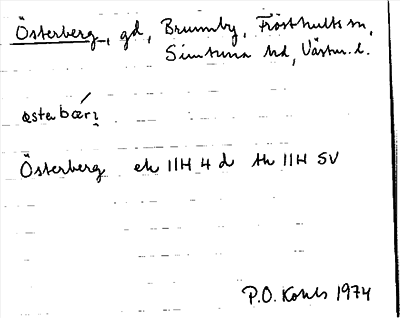 Österberg, gd, Brunnby, Frösthults sn,
Simtuna hd, Västm. l.
østabǽrɩ̣
Österberg ek 11H 4 d tk 11H SV
P.O. Kohls 1974